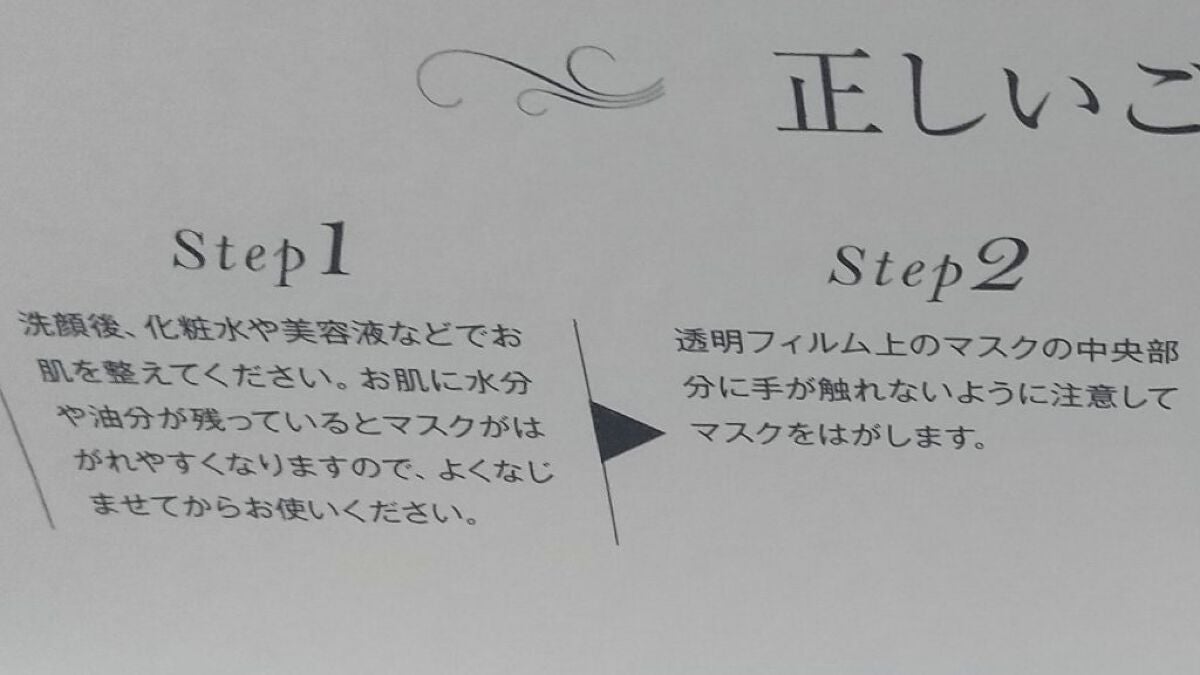 正しいご
Step1
洗顔後、化粧水や美容液などでお
肌を整えてください。お肌に水分
や油分が残っているとマスクがは
がれやすくなりますので、よくなじ
ませてからお使いください。
Step2
透明フィルム上のマスクの中央部
分に手が触れないように注意して
マスクをはがします。